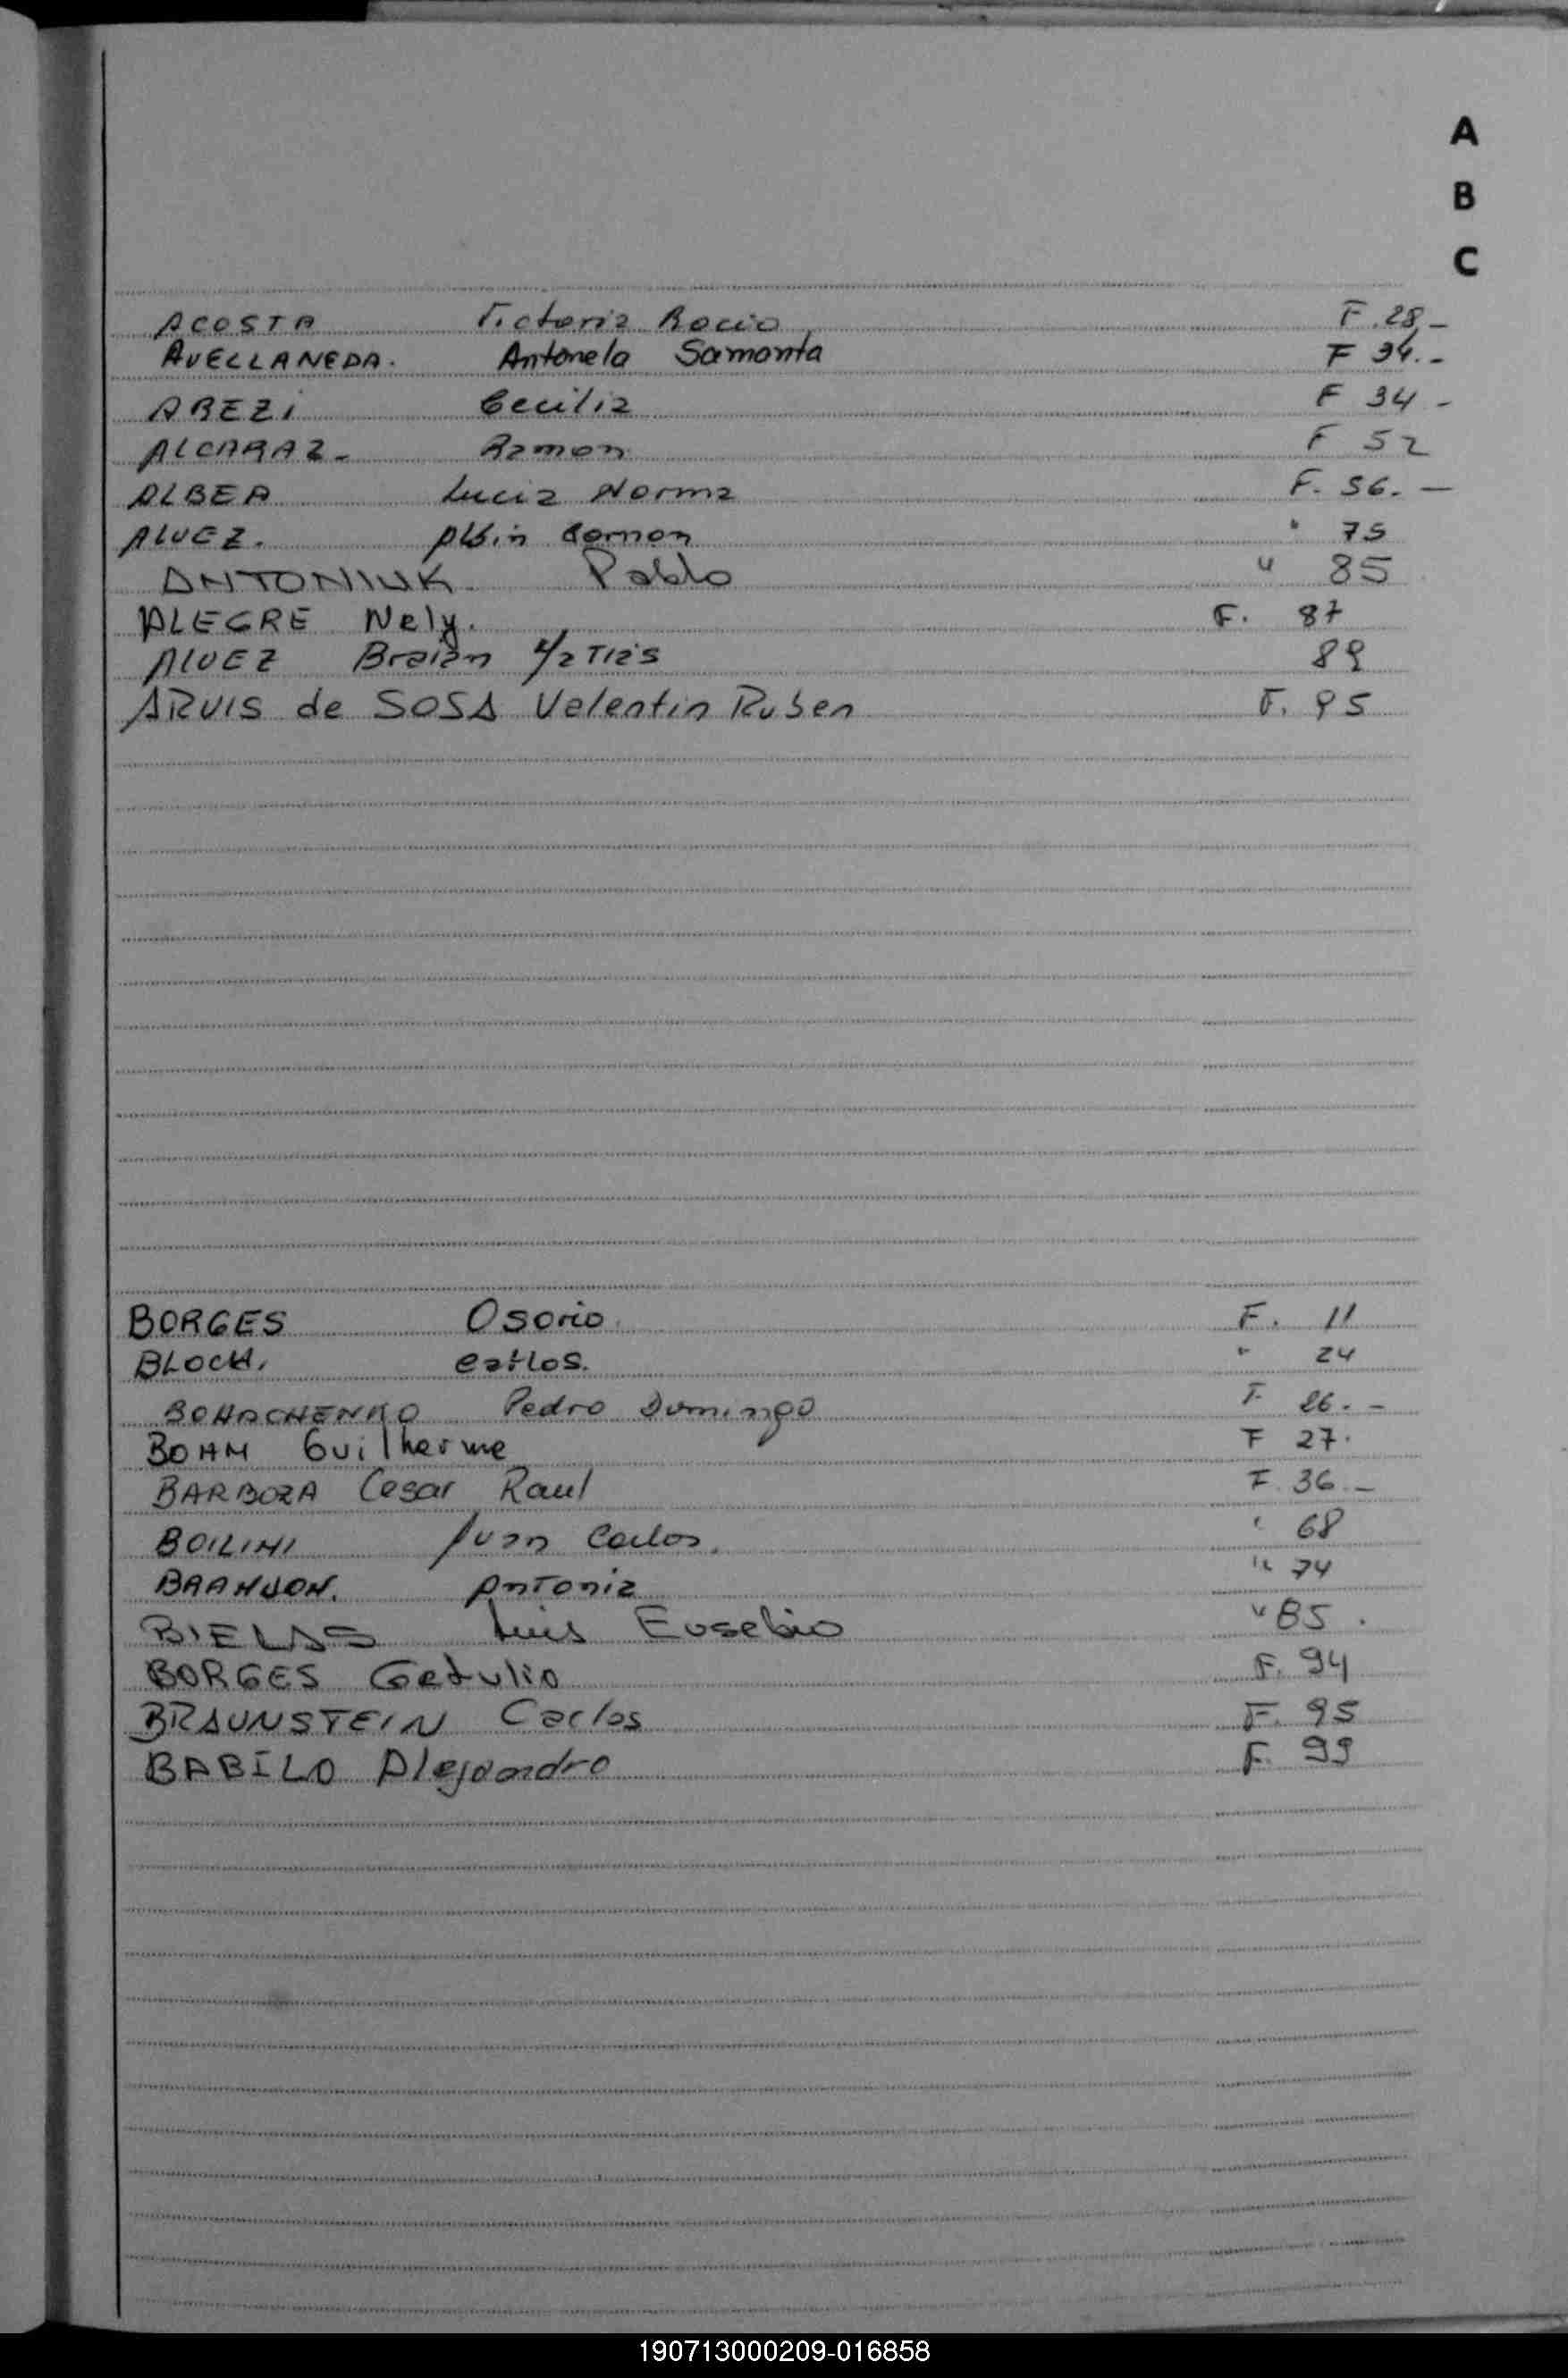 A
B
C
ACOSTA Victoria Rocio F. 28, -
AVELLANEDA. Antonela Samanta F 34. -
AREZi Cecilia F 34 -
ALCARAZ - Ramon F 52
ALBEA Lucia Norma F. 56. -
ALVEZ. Ramon " 75
ANTONIUK Pablo " 85
ALEGRE Nely. F. 87
ALVEZ Braian 89
ARVIS de SOSA Valentin Ruben F. 95
BORGES Osorio F. 11
BLOCH, Carlos. " 24
BOHACHENKO Pedro Domingo F. 26. -
BOHM Guilherme F 27.
BARBOZA Cesar Raul F. 36. -
Juan Carlos. " 68
Antonia " 74
BIELAS Luis Eusebio " 85.
BORGES Getulio F. 94
BRAUNSTEIN Carlos F. 95
BABILO Alejandro F. 99
190713000209-016858